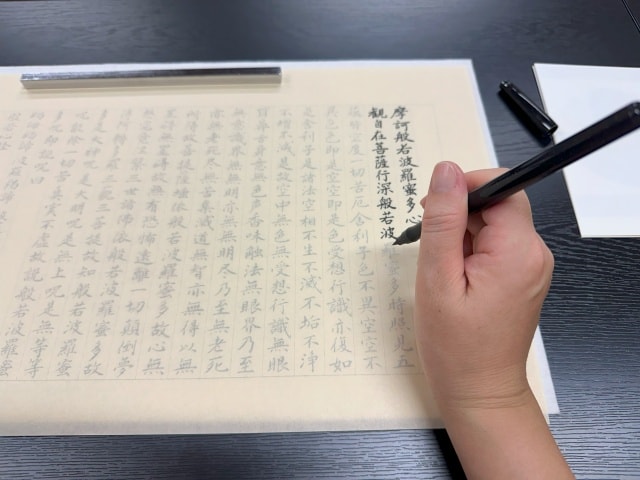 摩訶般若波羅蜜多心
観自在菩薩行深般若波羅蜜多時照見五
蘊皆空度一切苦厄舎利子色不異空空不
異色色即是空空即是色受想行識亦復如
是舎利子是諸法空相不生不滅不垢不浄
不増不減是故空中無色無受想行識無眼
耳鼻舌身意無色声香味触法無眼界乃至
無意識界無無明亦無無明尽乃至無老死
亦無老死尽無苦集滅道無智亦無得以無
所得故菩提薩埵依般若波羅蜜多故心無
罣礙無罣礙故無有恐怖遠離一切顛倒夢
想究竟涅槃三世諸仏依般若波羅蜜多故
得阿耨多羅三藐三菩提故知般若波羅蜜
多是大神呪是大明呪是無上呪是無等等
呪能除一切苦真実不虚故説般若波羅蜜
多呪即説呪曰